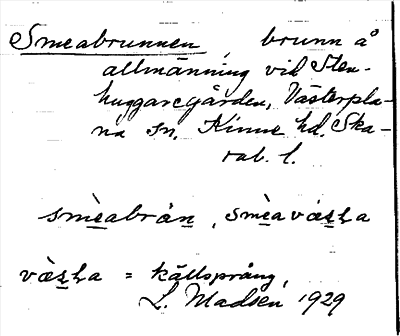 Smeabrunnen, brunn å
allmänning vid Sten-
huggaregården, Västerpla-
na sn, Kinne hd. Ska-
rab. l.
smèabrån, smèa
vàsha = källsprång,
L. Madsen 1929